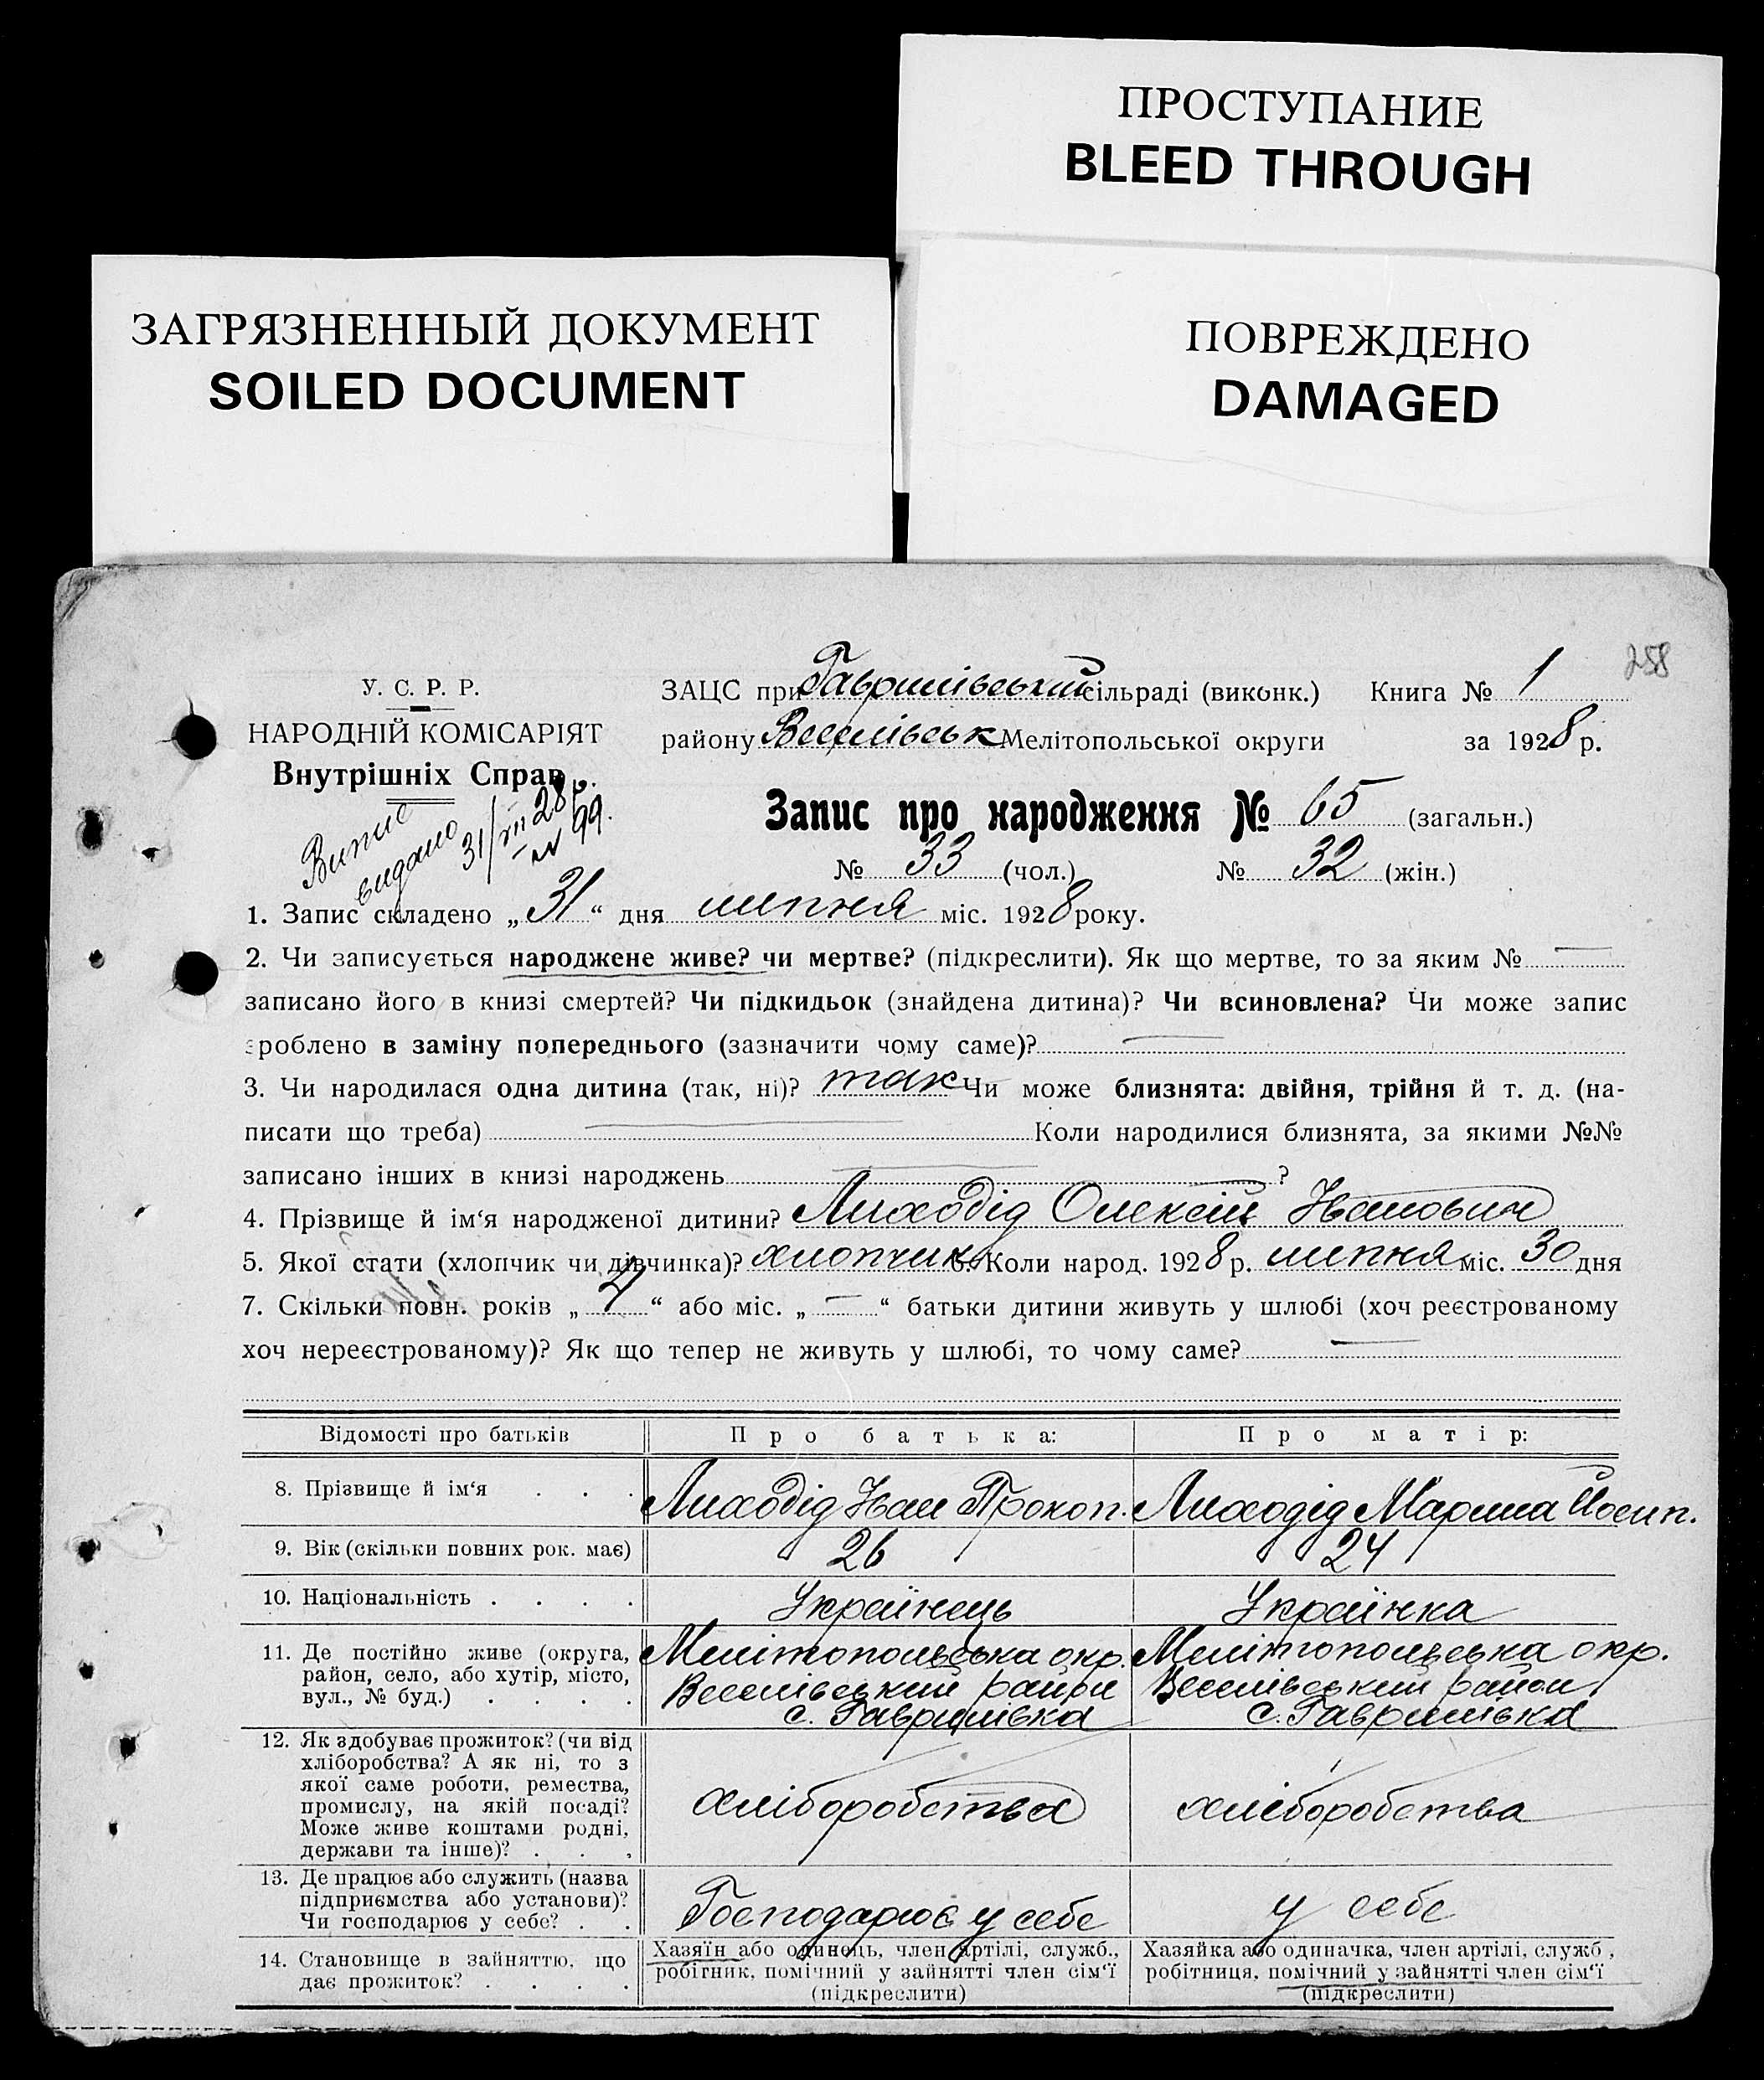 ПРОСТУПАНИЕ
BLEED THROUGH
ЗАГРЯЗНЕННЫЙ ДОКУМЕНТ
SOILED DOCUMENT
ПОВРЕЖДЕНО
DAMAGED
258
У. С. Р. Р.
НАРОДНІЙ КОМІСАРІЯТ
Внутрішніх Справ.
Витис видано 31/VII 28 р. № 99.
ЗАЦС при Гаврилівський сільраді (виконк.) Книга № 1
району Веселівськ Мелітопольської округи за 1928 р.
Запис про народження № 65 (загальн.)
№ 33 (чол.) № 32 (жін.)
1. Запис складено „31“ дня липня міс. 1928 року.
2. Чи записується народжене живе? чи мертве? (підкреслити). Як що мертве, то за яким № —
записано його в книзі смертей? Чи підкидьок (знайдена дитина)? Чи всиновлена? Чи може запис
зроблено в заміну попереднього (зазначити чому саме)? —
3. Чи народилася одна дитина (так, ні)? так Чи може близнята: двійня, трійня й т. д. (на-
писати що треба) — Коли народилися близнята, за якими №№
записано інших в книзі народжень — ?
4. Прізвище й ім‘я народженої дитини? Лиходід Олексій Іванович
5. Якої стати (хлопчик чи дівчинка)? хлопчик 6. Коли народ. 1928 р. липня міс. 30 дня
7. Скільки повн. років „4“ або міс. „—“ батьки дитини живуть у шлюбі (хоч реєстрованому
хоч нереєстрованому)? Як що тепер не живуть у шлюбі, то чому саме? —
Відомості про батьків Про батька: Про матір:
8. Прізвище й ім‘я . . . Лиходід Іван Прокоп. Лиходід Марина Йосип.
9. Вік (скільки повних рок. має) 26 24
10. Національність . . . . Українець Українка
11. Де постійно живе (округа,
район, село, або хутір, місто,
вул., № буд.) . . . .
Мелітопольська окр.
Веселівський район
с. Гаврилівка
Мелітопольська окр.
Веселівський район
с. Гаврилівка
12. Як здобуває прожиток? (чи від
хліборобства? А як ні, то з
якої саме роботи, ремества,
промислу, на якій посаді?
Може живе коштами родні,
держави та інше)? . . .
хліборобства
хліборобства
13. Де працює або служить (назва
підприємства або установи)?
Чи господарює у себе? . .
Господарює у себе
у себе
14. Становище в зайняттю, що
дає прожиток? . . . .
Хазяїн або одинець, член артілі, служб.,
робітник, помічний у зайнятті член сім‘ї
(підкреслити)
Хазяйка або одиначка, член артілі, служб.,
робітниця, помічний у зайнятті член сім‘ї
(підкреслити)